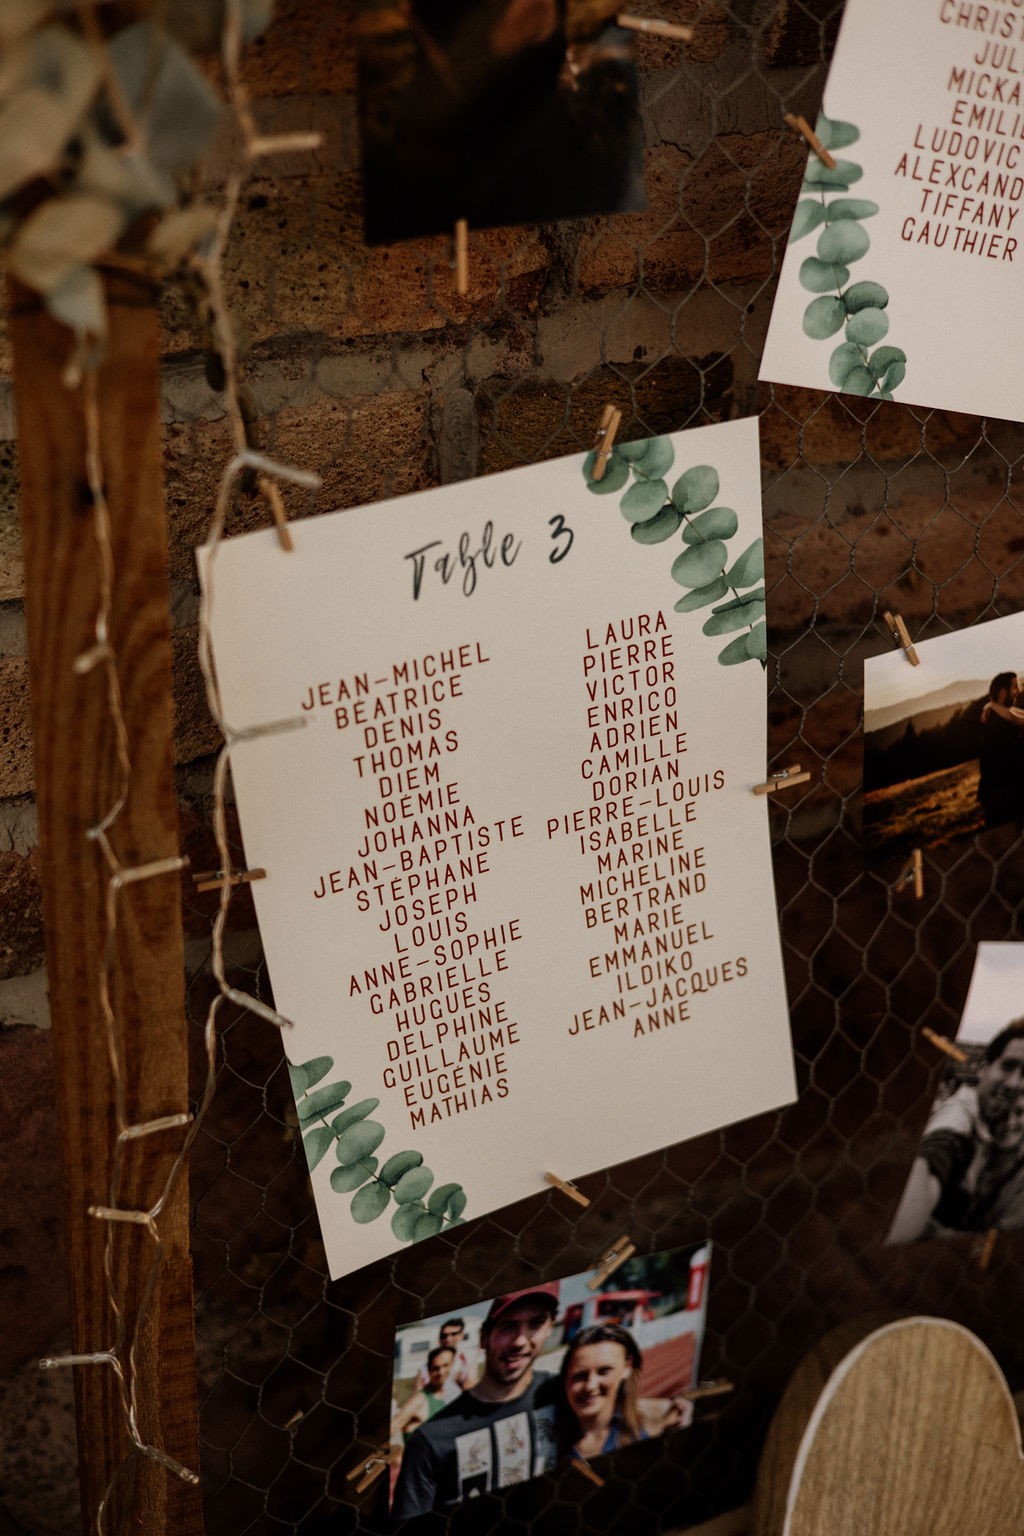 Table 3
JEAN-MICHEL
BÉATRICE
DENIS
THOMAS
DIEM
NOÉMIE
JOHANNA
JEAN-BAPTISTE
STÉPHANE
JOSEPH
LOUIS
ANNE-SOPHIE
GABRIELLE
HUGUES
DELPHINE
GUILLAUME
EUGÉNIE
MATHIAS
LAURA
PIERRE
VICTOR
ENRICO
ADRIEN
CAMILLE
DORIAN
PIERRE-LOUIS
ISABELLE
MARINE
MICHELINE
BERTRAND
MARIE
EMMANUEL
ILDIKO
JEAN-JACQUES
ANNE
CHRIST
JUL
MICKA
EMILIE
LUDOVIC
ALEXCAND
TIFFANY
GAUTHIER